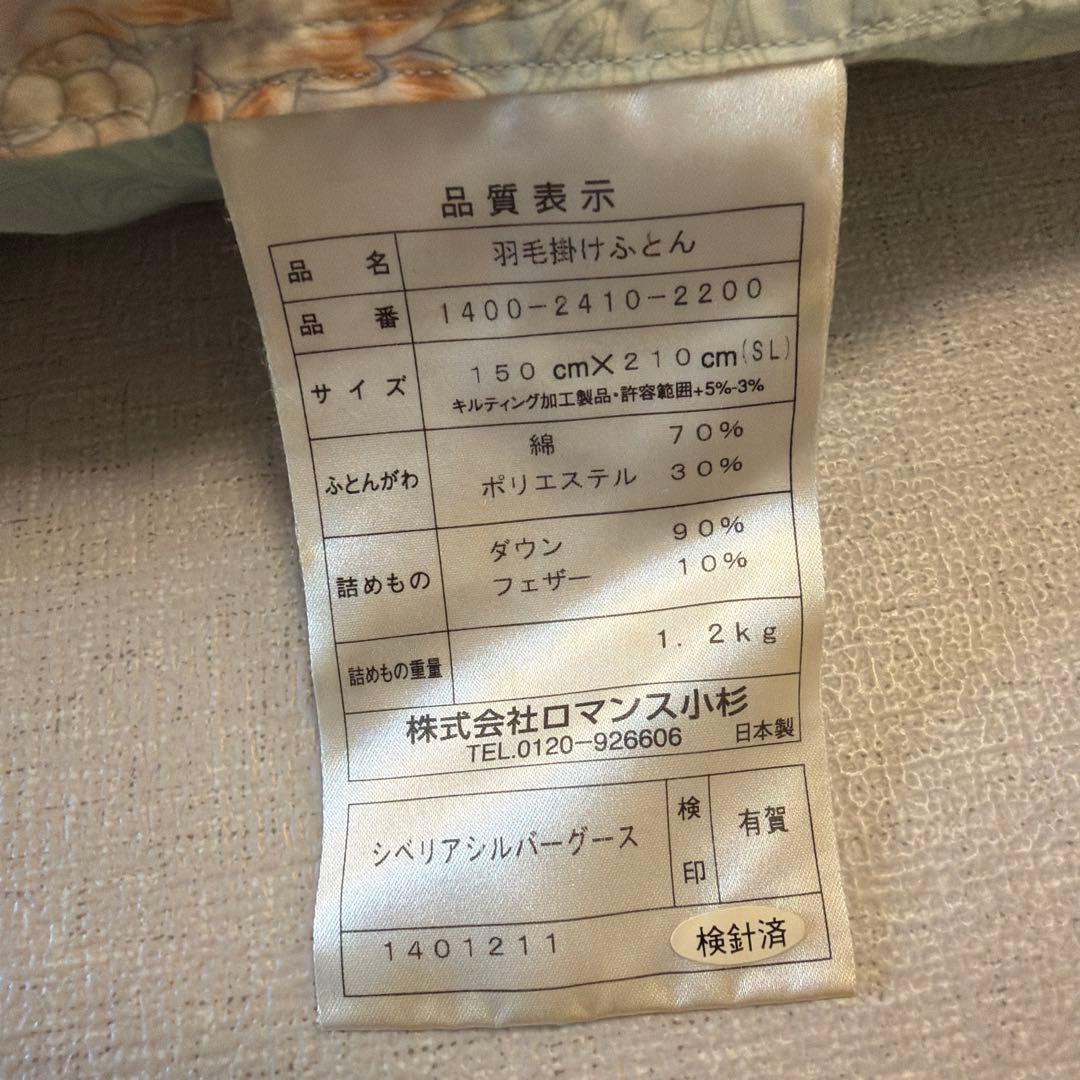 品質表示
品名 羽毛掛けふとん
品番 1400-2410-2200
サイズ 150 cm×210cm(SL)
キルティング加工製品・許容範囲+5%-3%
ふとんがわ 綿 70%
ポリエステル 30%
詰めもの ダウン 90%
フェザー 10%
詰めもの重量 1.2kg
株式会社ロマンス小杉
TEL.0120-926606 日本製
シベリアシルバーグース 検印 有賀
1401211 検針済